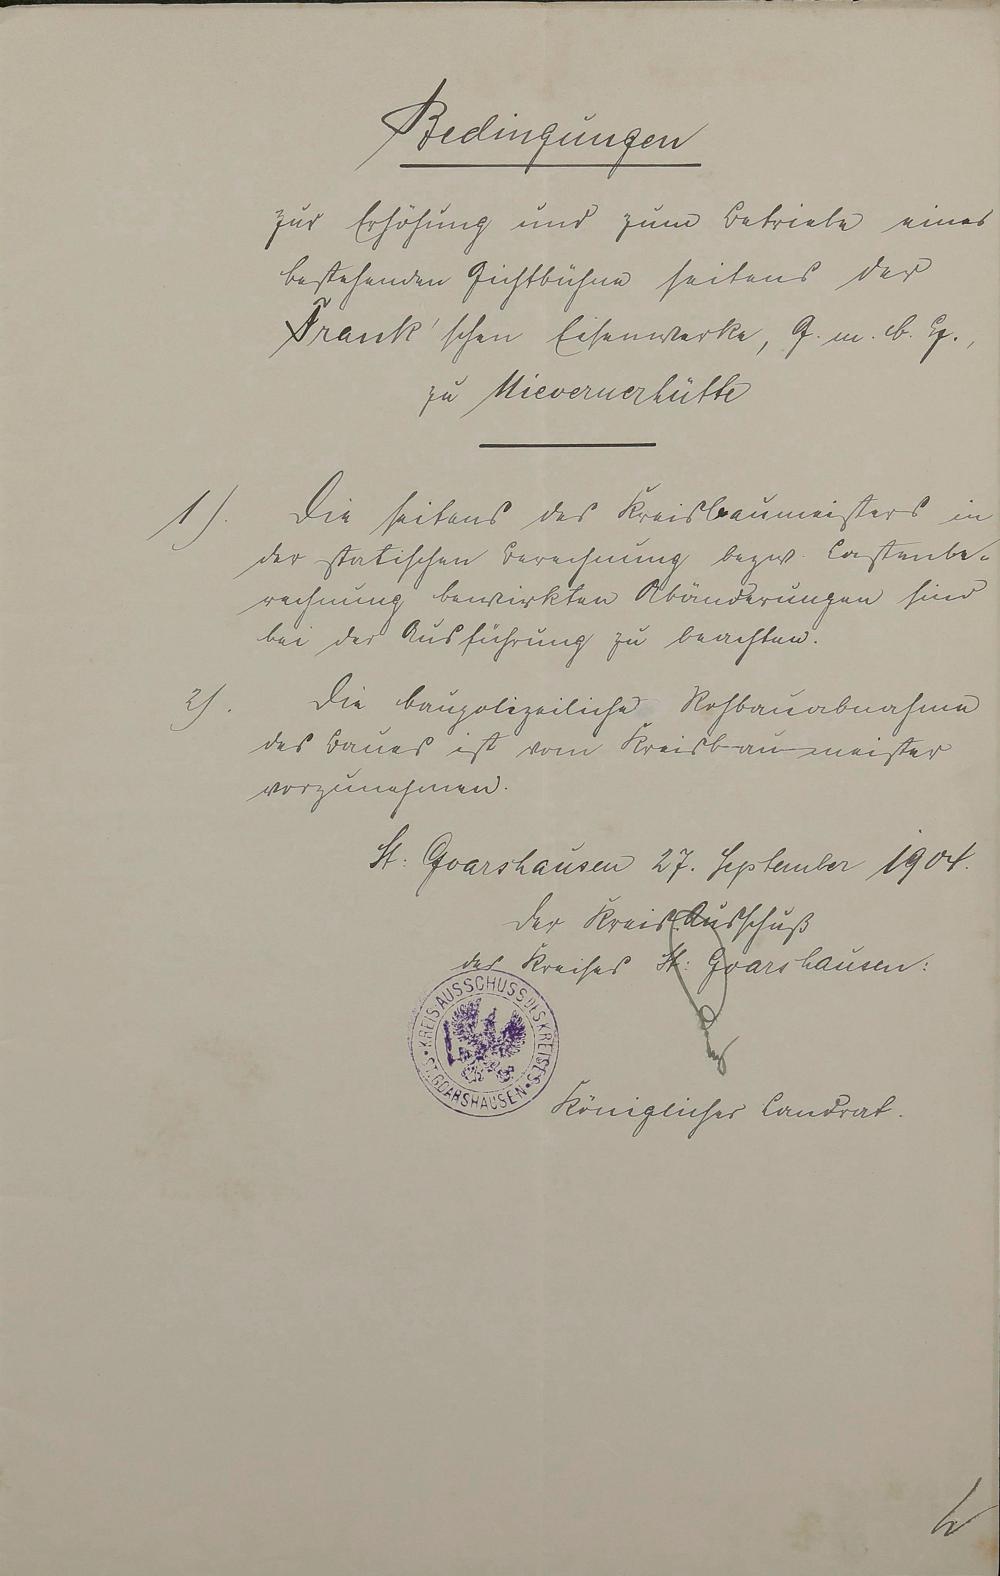 Bedingungen
zur Erhöhung und zum Betriebe eines
bestehenden Gichtbühne seitens der
Frank'schen Eisenwerke, G. m. b. H.,
zu Nievernerhütte
1). Die seitens des Kreisbaumeisters in
der statischen Berechnung bezw. Lastenbe-
rechnung bewirkten Abänderungen sind
bei der Ausführung zu beachten.
2). Die baupolizeiliche Rohbauabnahme
des Baues ist vom Kreisbaumeister
vorzunehmen.
St. Goarshausen 27. September 1904.
Der Kreis Ausschuß
des Kreises St. Goarshausen:
KREIS-AUSSCHUSS DES KREISES
ST. GOARSHAUSEN
Königlicher Landrat.